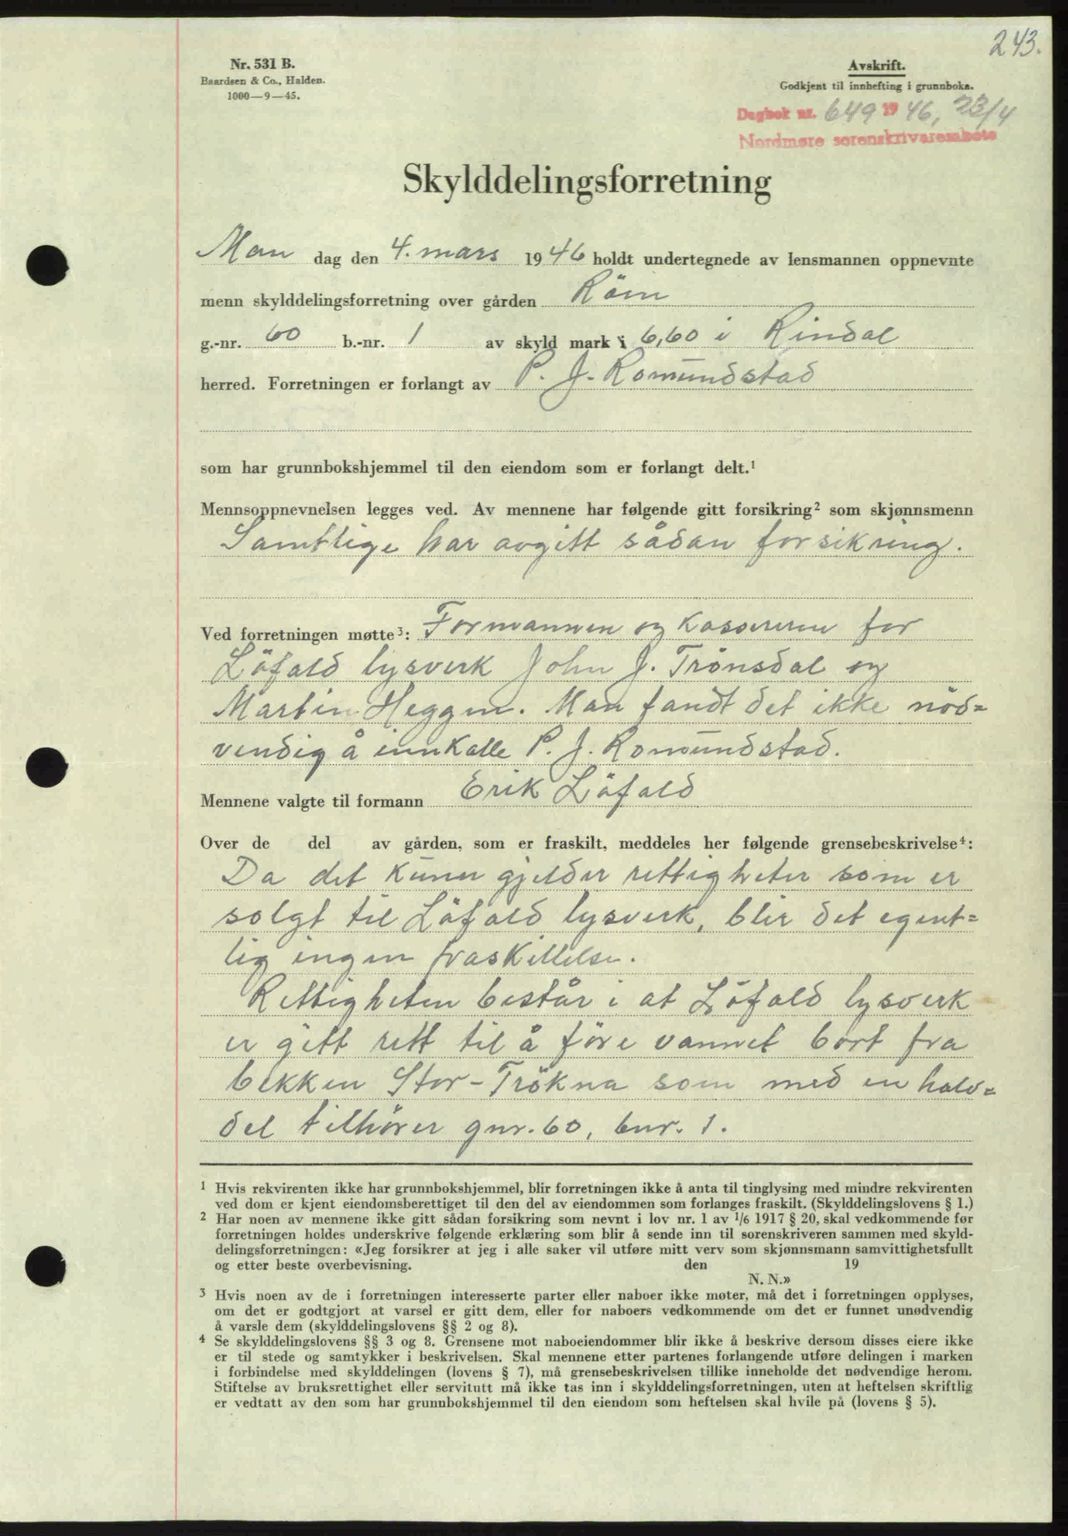 243.
Nr. 531 B.
Baardsen & Co., Halden.
1000—9—45.
Avskrift.
Godkjent til innhefting i grunnboka.
Dagbok nr. 649 19 46, 23/4
Nordmøre sorenskrivarembete
Skylddelingsforretning
Man dag den 4. mars 1946 holdt undertegnede av lensmannen oppnevnte
menn skylddelingsforretning over gården Röen
g.-nr. 60 b.-nr. 1 av skyld mark 6,60 i Rindal
herred. Forretningen er forlangt av P. J. Romundstad
som har grunnbokshjemmel til den eiendom som er forlangt delt.¹
Mennsoppnevnelsen legges ved. Av mennene har følgende gitt forsikring² som skjønnsmenn
Samtlige har avgitt sådan forsikring.
Ved forretningen møtte³: Formannen og kassereren for
Löfald lysverk John J. Trönsdal og
Martin Heggem. Man fandt det ikke nöd=
vendig å innkalle P. J. Romundstad.
Mennene valgte til formann Erik Löfald
Over de del av gården, som er fraskilt, meddeles her følgende grensebeskrivelse⁴:
Da det kuner gjelder rettigheter som er
solgt til Löfald lysverk, blir det egent=
lig ingen fraskillelse.
Rettigheten består i at Löfald lysverk
er gitt rett til å före vannet bort fra
bekken Stor-Trökna som med en halv=
del tilhörer gnr. 60, bnr. 1.
¹ Hvis rekvirenten ikke har grunnbokshjemmel, blir forretningen ikke å anta til tinglysing med mindre rekvirenten
ved dom er kjent eiendomsberettiget til den del av eiendommen som forlanges fraskilt. (Skylddelingslovens § 1.)
² Har noen av mennene ikke gitt sådan forsikring som nevnt i lov nr. 1 av ¹/6 1917 § 20, skal vedkommende før
forretningen holdes underskrive følgende erklæring som blir å sende inn til sorenskriveren sammen med skyld-
delingsforretningen: «Jeg forsikrer at jeg i alle saker vil utføre mitt verv som skjønnsmann samvittighetsfullt
og etter beste overbevisning. den 19
N. N.»
³ Hvis noen av de i forretningen interesserte parter eller naboer ikke møter, må det i forretningen opplyses,
om det er godtgjort at varsel er gitt dem, eller for naboers vedkommende om det er funnet unødvendig
å varsle dem (skylddelingslovens §§ 2 og 8).
⁴ Se skylddelingslovens §§ 3 og 8. Grensene mot naboeiendommer blir ikke å beskrive dersom disses eiere ikke
er til stede og samtykker i beskrivelsen. Skal mennene etter partenes forlangende utføre delingen i marken
i forbindelse med skylddelingen (lovens § 7), må grensebeskrivelsen tillike inneholde det nødvendige herom.
Stiftelse av bruksrettighet eller servitutt må ikke tas inn i skylddelingsforretningen, uten at heftelsen skriftlig
er vedtatt av den som har grunnbokshjemmel til den eiendom som heftelsen skal hvile på (lovens § 5).